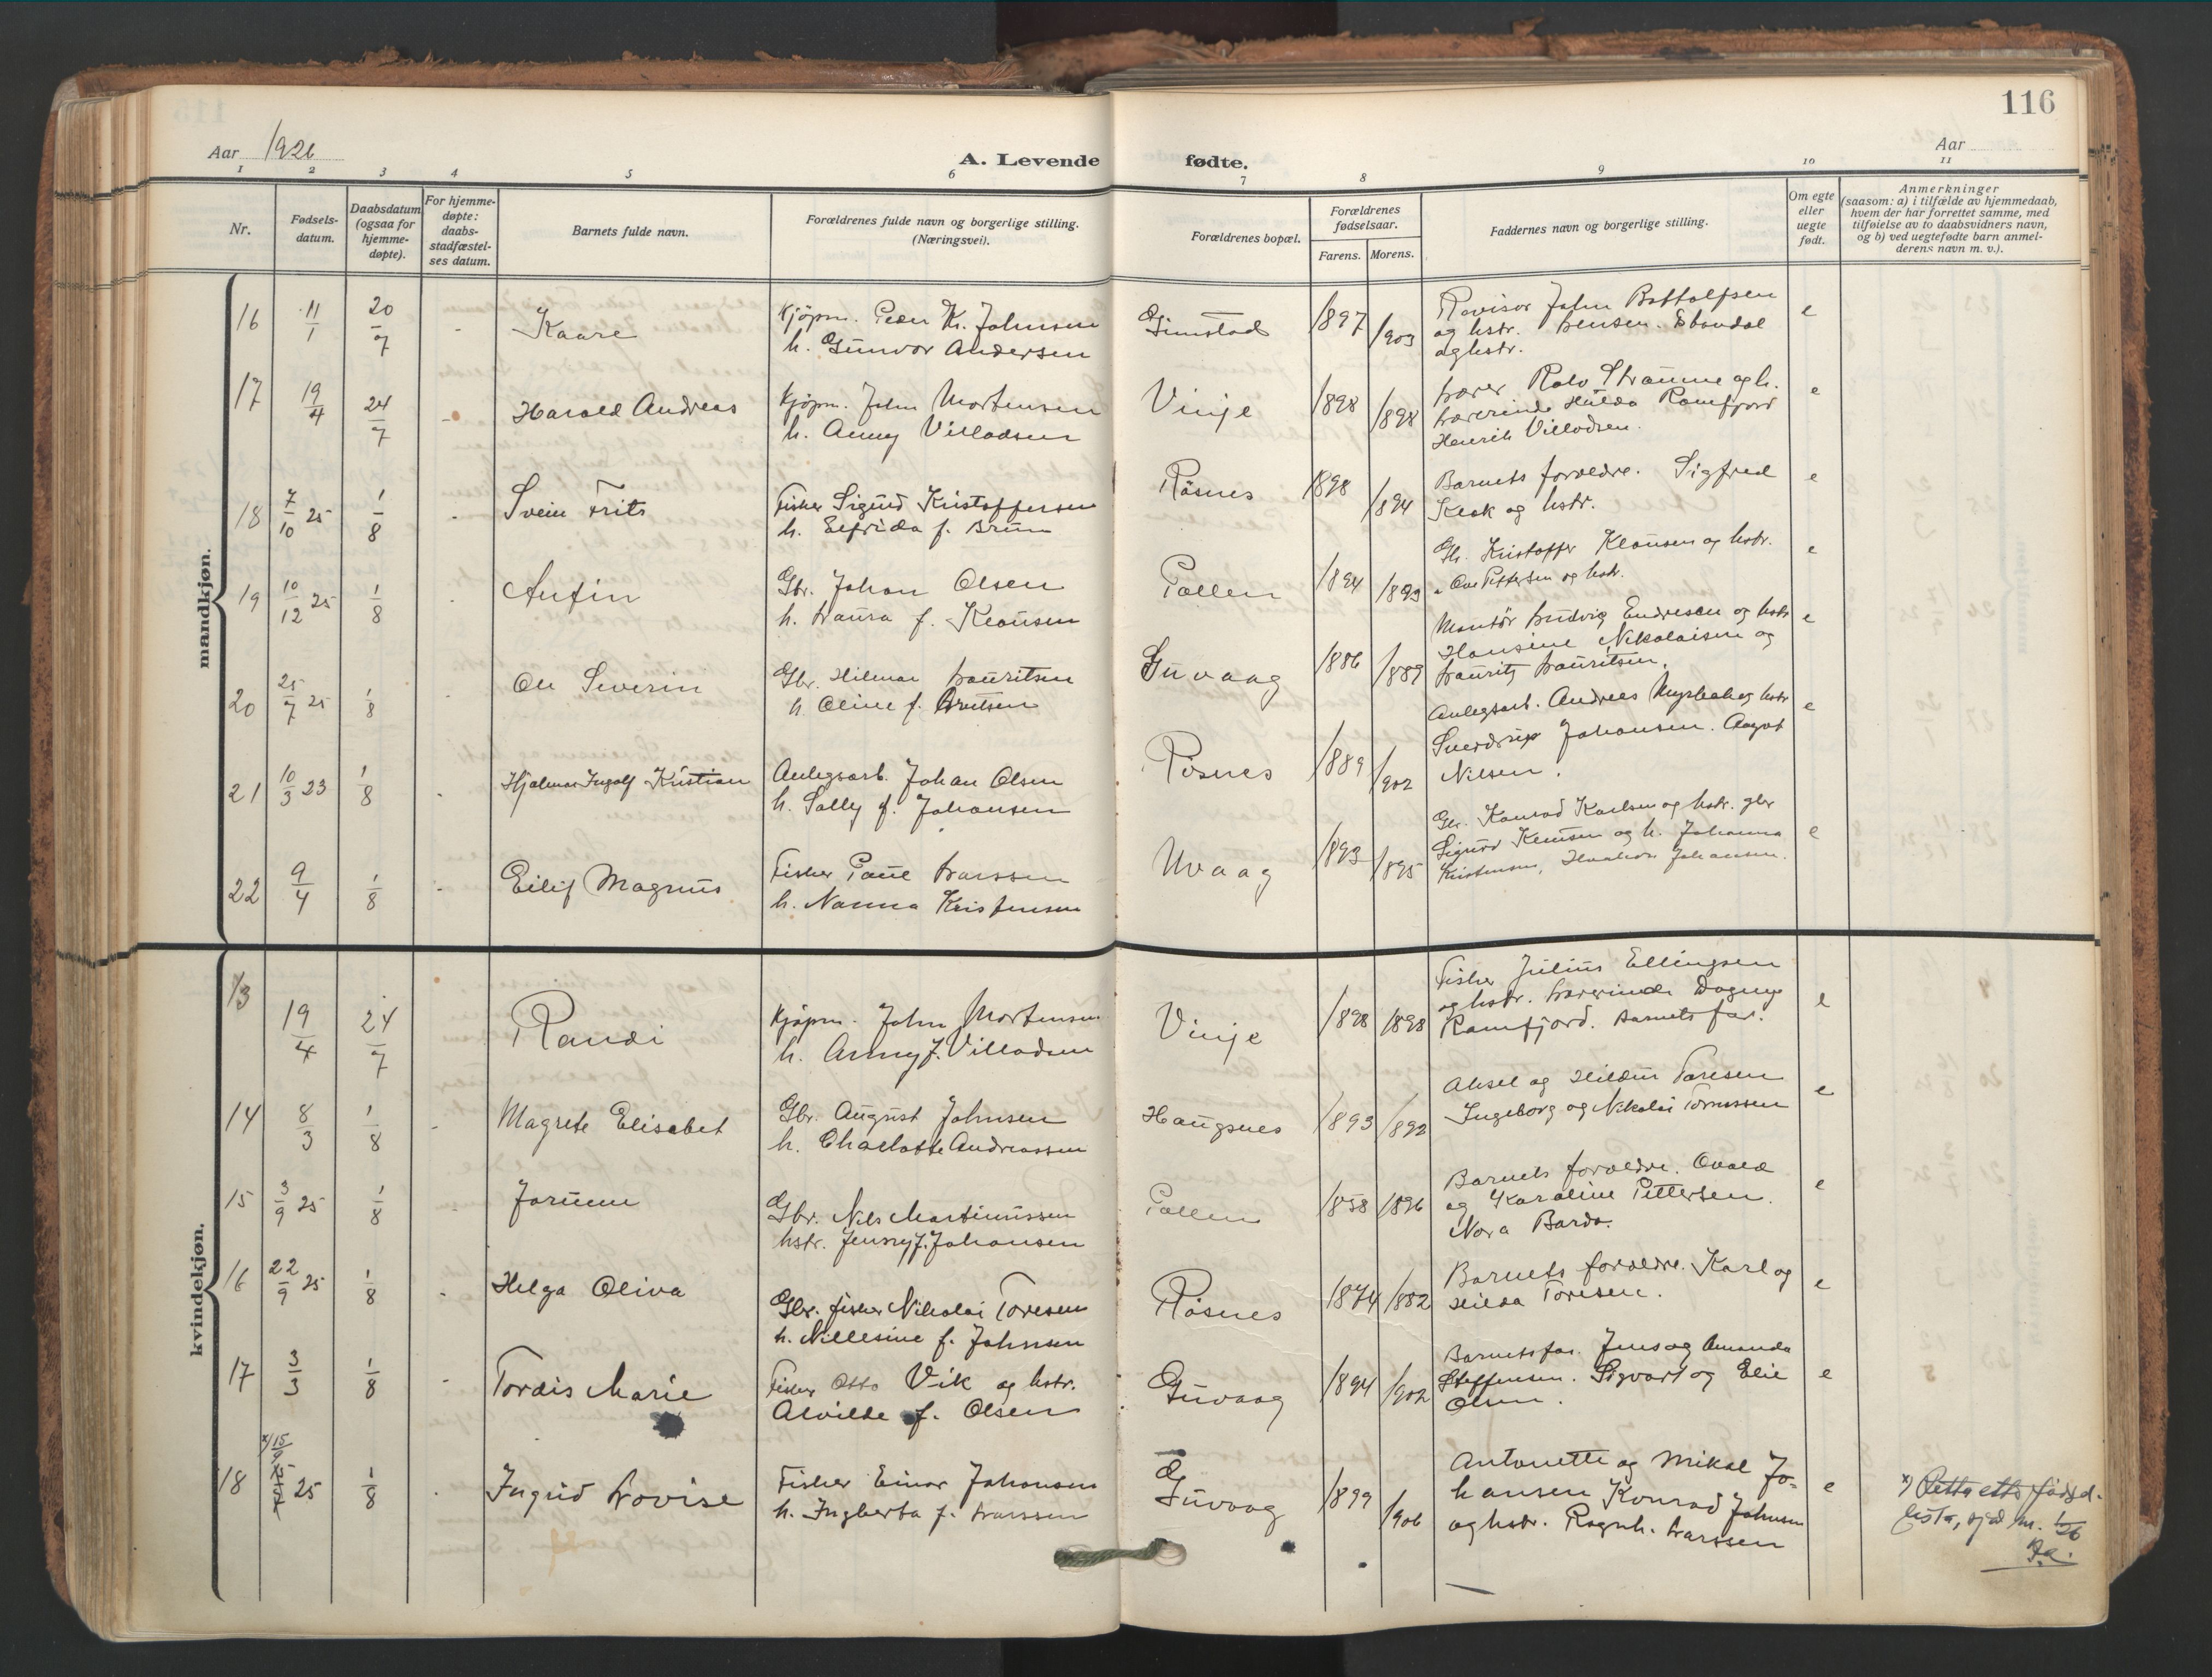 116
Aar 1926
A. Levende fødte.
Aar
1 2 3 4 5 6 7 8 9 10 11
Nr.
Fødsels-
datum.
Daabsdatum
(ogsaa for
hjemme-
døpte).
For hjemme-
døpte:
daabs-
stadfæstel-
ses datum.
Barnets fulde navn.
Forældrenes fulde navn og borgerlige stilling.
(Næringsvei).
Forældrenes bopæl.
Forældrenes
fødselsaar.
Farens. Morens.
Faddernes navn og borgerlige stilling.
Om egte
eller
uegte
født.
Anmerkninger
(saasom: a) i tilfælde av hjemmedaab,
hvem der har forrettet samme, med
tilføielse av to daabsvidners navn,
og b) ved uegtefødte barn anmel-
derens navn m. v.).
mandkjøn.
16 11/1 20/7 - Kaare
Kjøpm. Peder K. Johnsen
h. Gunvor Andersen
Gimstad 1897 1903
Revisor John Bottolfsen
og hstr. Jensen.
og hstr.
e
17 19/4 24/7 - Harald Andreas
Kjøpm. John Mortensen
h. Anny Villadsen
Vinje 1898 1898
Lærer Rolv Straume og h.
Lærerinde Hulda Ramfjord
Henrik Villadsen.
e
18 7/10 25 1/8 - Svein Frits
Fisker Sigurd Kristoffersen
h. Elfrida f. Brun
Røsnes 1898 1894
Barnets forældre. Sigfred
Klok og hstr.
e
19 10/12 25 1/8 - Anfin
Gbr. Johan Olsen
h. Laura f. Klausen
Pollen 1894 1893
Gb. Kristoffer Klausen og hstr.
" Ove Pettersen og hstr.
e
20 25/7 25 1/8 - Ole Severin
Gbr. Hilmar Lauritsen
h. Oline f. Knutsen
Guvaag 1886 1889
Montør Ludvig Endresen og hstr
Hansine Nikolaisen og
Laurits Lauritsen.
e
21 10/3 23 1/8 - Hjalmar Ingolf Kristian
Anlegsarb. Johan Olsen
h. Sally f. Johansen
Røsnes 1889 1902
Anlegsarb. Andreas Myrbak og hstr
Sverdrup Johansen. Aagot
Nilsen.
e
22 9/4 1/8 - Eilif Magnus
Fisker Paul Larssen
h. Nanna Kristensen
Uvaag 1893 1895
Gb. Konrad Karlsen og hstr. gbr
Sigurd Knutsen og h. Johanna
Kristensen, Johansen.
e
kvindekjøn.
13 19/4 24/7 Randi
Kjøpm. John Mortensen
h. Anny f. Villadsen
Vinje 1898 1898
Fisker Julius Ellingsen
og hstr. Lærerinde Dagny
Ramfjord. Barnets far.
e
14 8/3 1/8 - Magrete Elisabet
Gbr. August Johnsen
h. Charlotte Andreassen
Haugsnes 1893 1892
Aksel og Hildur Toresen
Ingeborg og Nikolai Tornessen
e
15 3/9 25 1/8 - Jorunn
Gbr. Nils Martinussen
hstr. Jenny f. Johansen
Pollen 1858 1896
Barnets forældre. Ovald
og Karoline Pettersen.
Nora Bardo.
e
16 22/9 25 1/8 - Helga Oliva
Gbr. fisker Nikolai Toresen
h. Nillesine f. Johnsen
Røsnes 1874 1882
Barnets forældre. Karl og
Hilda Toresen.
e
17 3/3 1/8 - Tordis Marie
Fisker Otto Vik og hstr.
Alvilde f. Olsen
Guvaag 1894 1902
Barnets far. Jens og Amanda
Steffensen. Sigvart og Elie
Olsen.
e
18 x) 15/9 25 1/8 - Ingrid Lovise
Fisker Einar Johansen
h. Ingberta f. Larssen
Guvaag 1899 1906
Antonette og Mikal Jo-
hansen Konrad Johnsen
og hstr. Ragnh. Larssen
e
x) Retta etter fødsel-
lista, sjå nr. 1/26